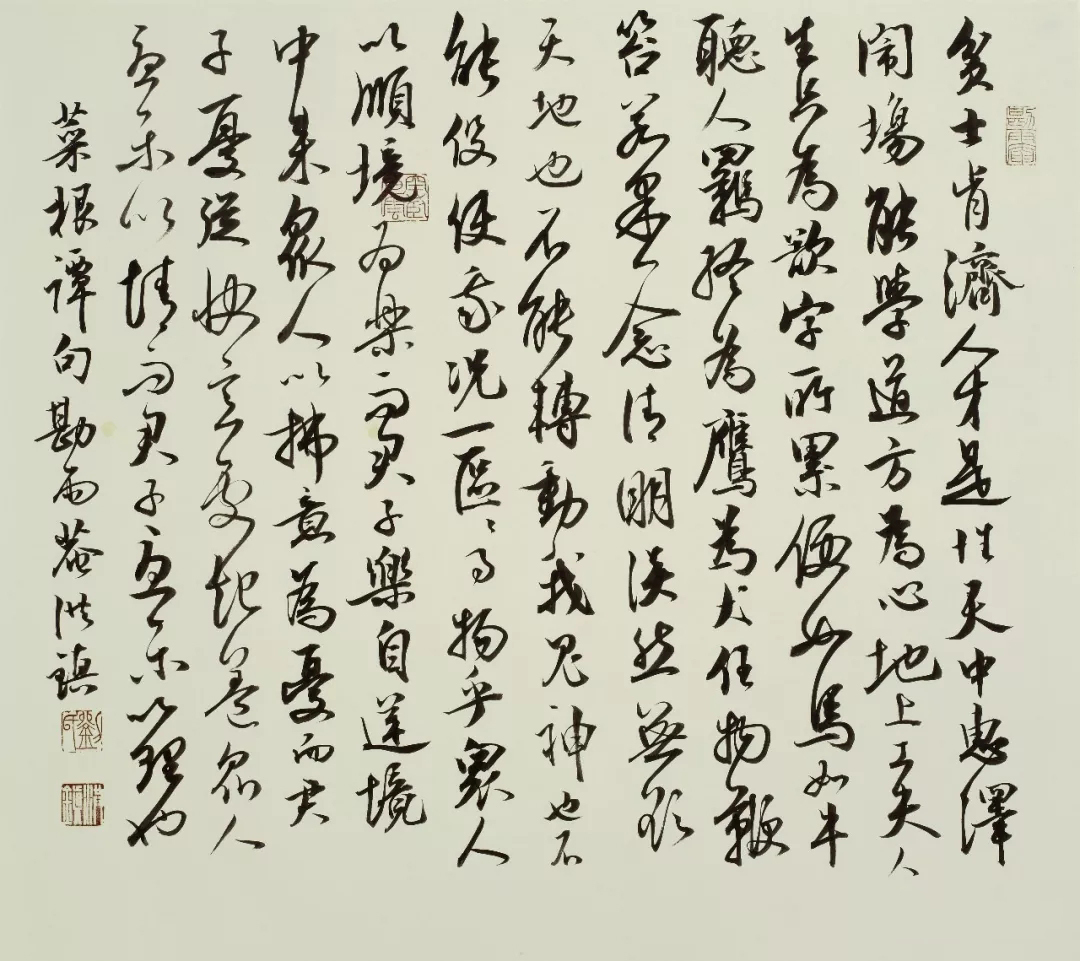 貧士肯濟人才是性天中惠澤
鬧場能學道方為心地上工夫人
生只為欲字所累便如馬如牛
聽人羈絡為鷹為犬任物鞭
笞若果一念清明淡然無欲
天地也不能轉動我鬼神也不
能役使我況一區〻事物乎眾人
以順境為樂而君子樂自逆境
中來眾人以拂意為憂而君
子憂從快意處起蓋眾人
憂樂以情而君子憂樂以理也
菜根譚句勘雨菴洪鎮